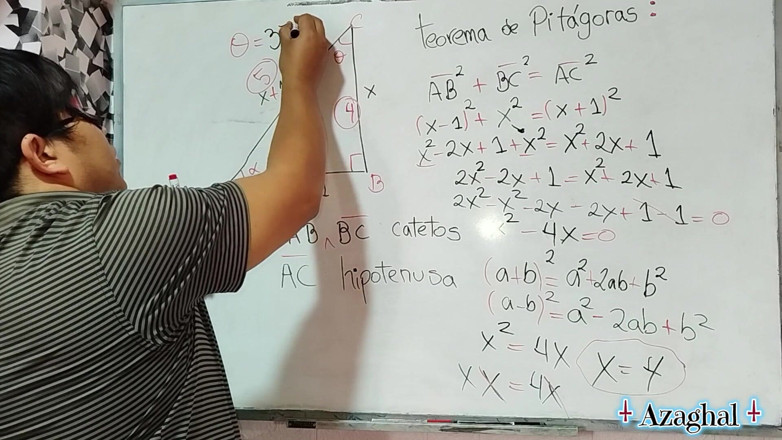 teorema de Pitágoras:
θ = 3
C
θ
5
x+
4
x
α
B
AB² + BC² = AC²
(x-1)² + x² = (x+1)²
x² - 2x + 1 + x² = x² + 2x + 1
2x² - 2x + 1 = x² + 2x + 1
2x² - x² - 2x - 2x + 1 - 1 = 0
² - 4x = 0
AB ∧ BC catetos
AC hipotenusa
(a+b)² = a² + 2ab + b²
(a-b)² = a² - 2ab + b²
x² = 4x
x x = 4x
x = 4
Azaghal